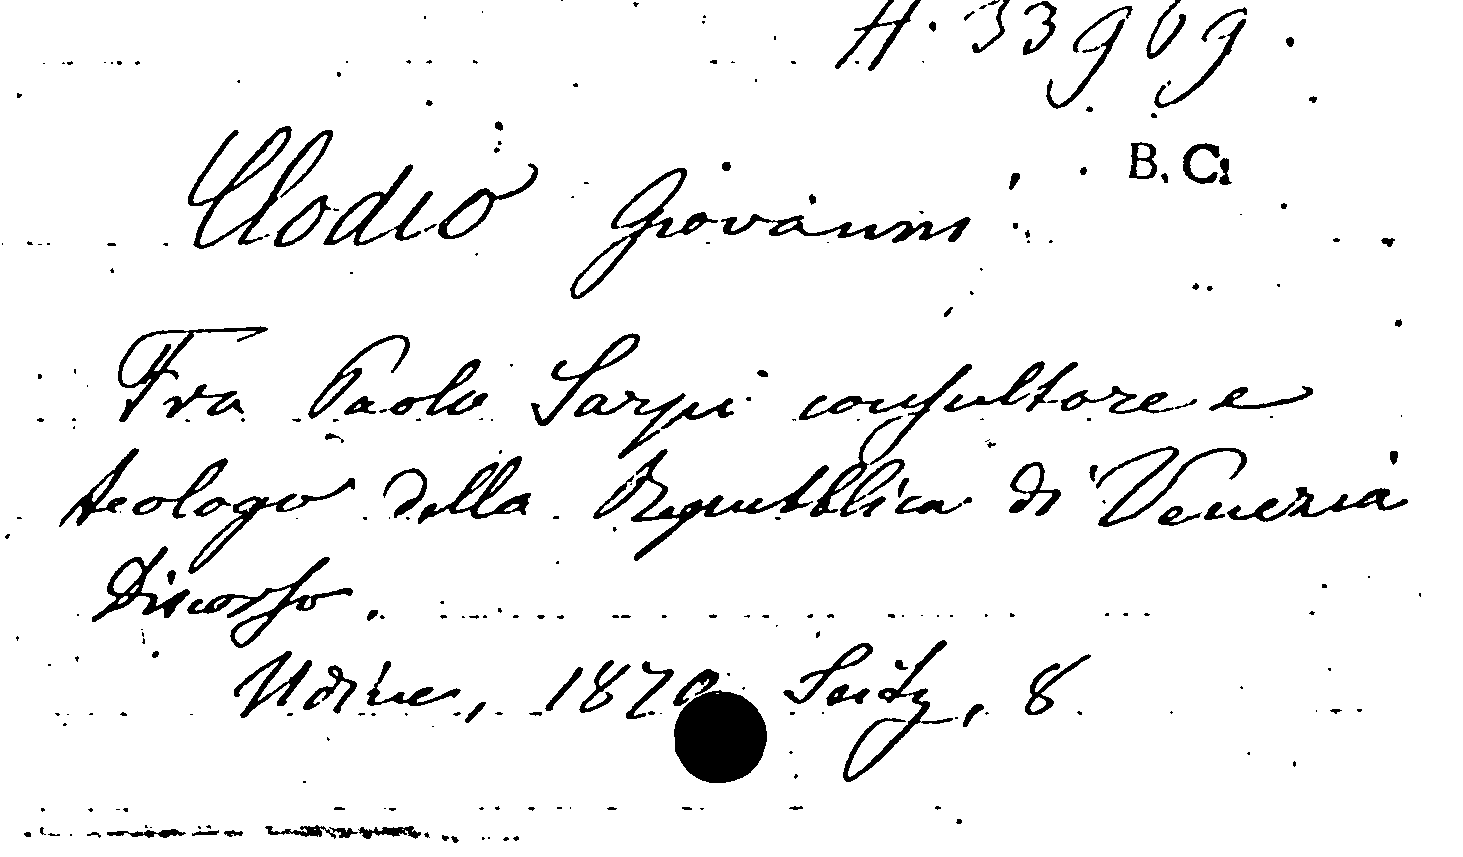 H. 33909.
B. C.
Clodio Giovanni
Fra Paolo Sarpi consultore e
teologo della Repubblica di Venezia
Discorso.
Udine, 1870 Seitz, 8